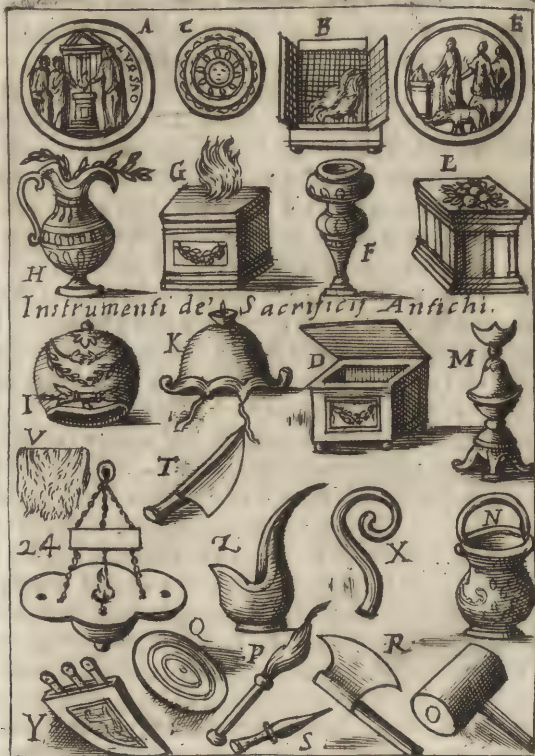 A C B E
LVDSAO
G L
H F
Instrumenti de' Sacrificij Antichi.
K D M
I
V T
24 Z X N
Q P R
Y S O